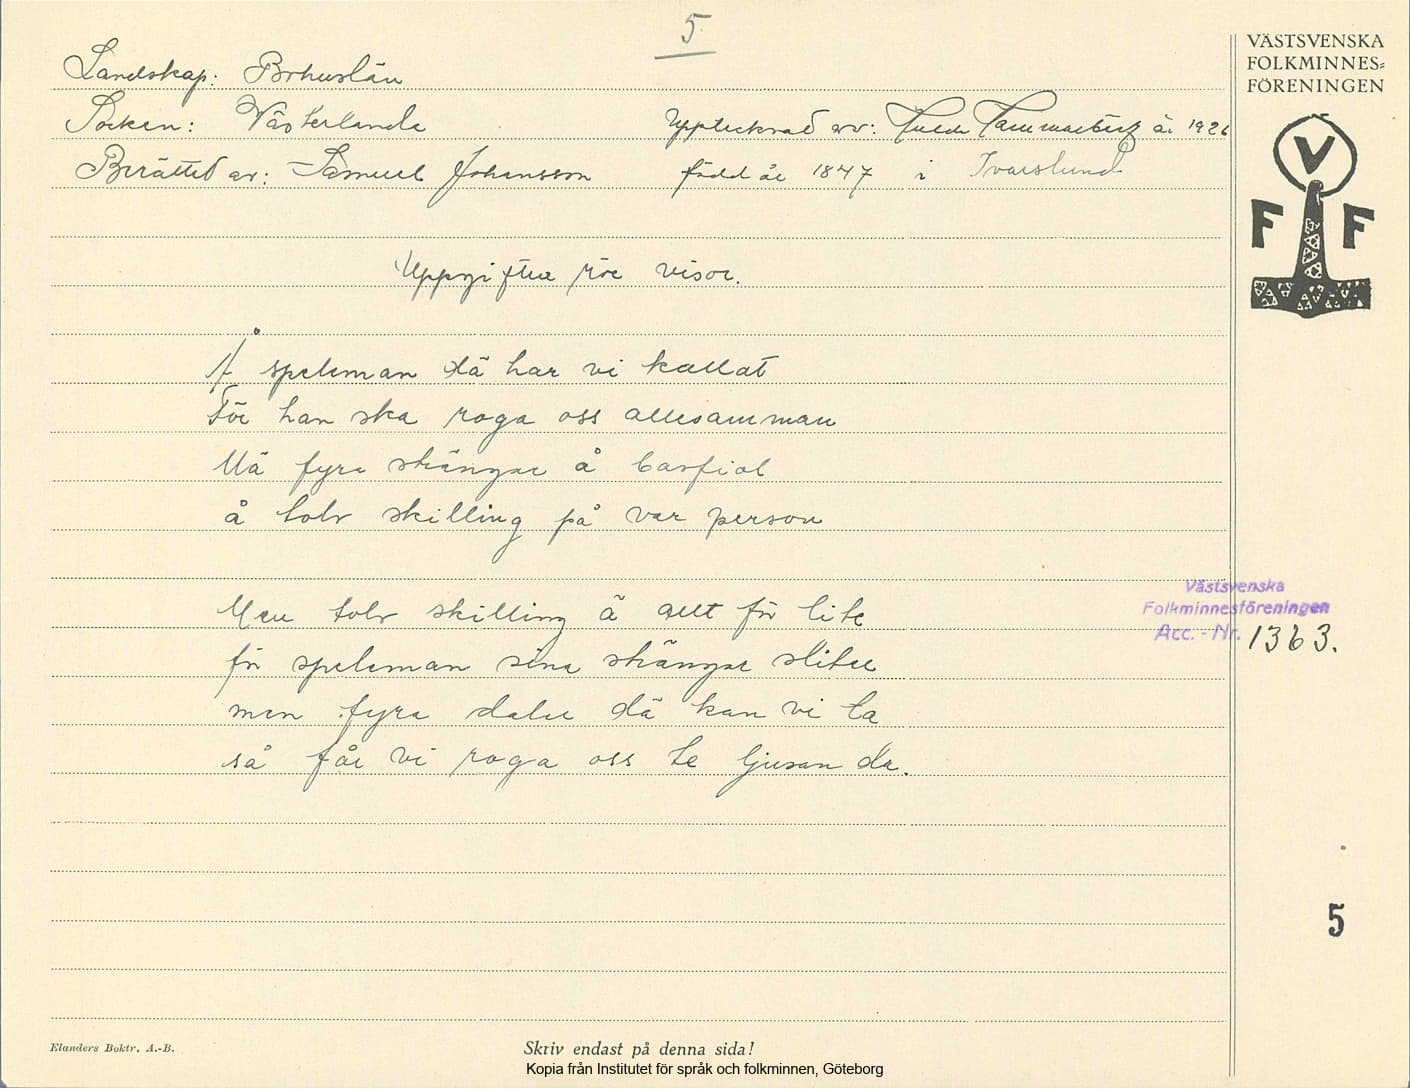 5.
Landskap: Bohuslän
Socken: Västerlanda
Upptecknad av: Tammarbäck år 1926
Berättad av: Samuel Johansson född år 1847 i Ivarslund
Uppgifter rör visor.
Å speleman dä har vi kallat
För han ska roga oss allesamman
Mä fyra strängar å basfiol
å tolv skilling på var person
Men tolv skilling ä allt för lite
för speleman sina strängar sliter
men fyra daler dä kan vi ta
så får vi roga oss te ljusan da.
VÄSTSVENSKA
FOLKMINNES=
FÖRENINGEN
V
F F
Västsvenska
Folkminnesföreningen
Acc. - Nr. 1363.
5
Elanders Boktr. A.-B.
Skriv endast på denna sida!
Kopia från Institutet för språk och folkminnen, Göteborg